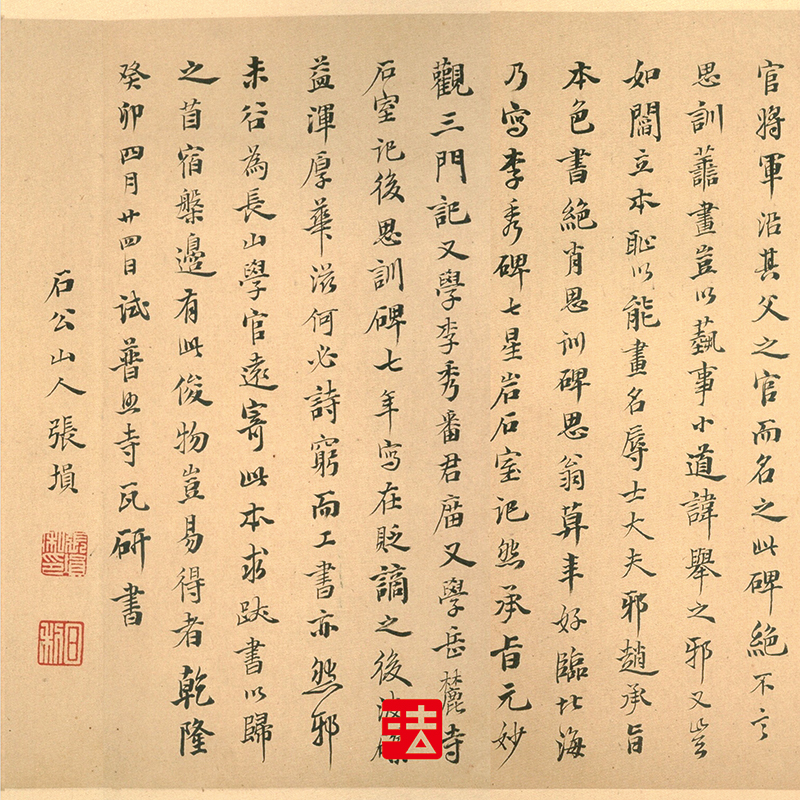 官將軍沿其父之官而名之此碑絕不言
思訓蘦畫豈以藝事小道諱舉之邪又豈
如閻立本恥以能畫名辱士大夫邪趙承旨
本色書絕肖思訓碑思翁算丰好臨北海
乃寫李秀碑七星岩石室記然承旨元妙
觀三門記又學李秀番君廟又學岳麓寺
石室記後思訓碑七年寫在貶謫之後波磔
益渾厚華滋何必詩窮而工書亦然邪
未谷為長山學官遠寄此本求跋書以歸
之苜宿槃邊有此俊物豈易得者乾隆
癸卯四月廿四日試普照寺瓦研書
石公山人張塤
法